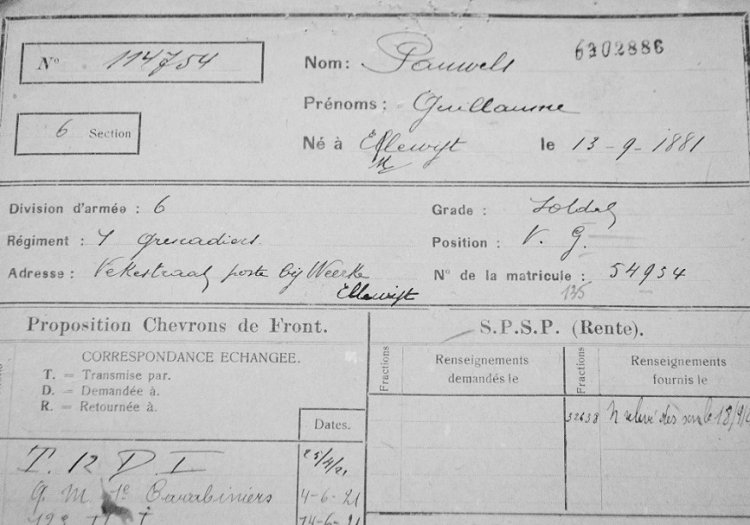 N° 114754
Nom: Pauwels
6302886
Prénoms: Guillaume
6 Section
Né à Ellewijt le 13-9-1881
Division d'armée: 6
Grade: Soldat
Régiment: 1 grenadiers.
Position: V. G.
Adresse: Vekestraat poste bij Weerde
N° de la matricule: 54934
Ellewijt
135
Proposition Chevrons de Front.
S.P.S.P. (Rente).
CORRESPONDANCE ECHANGEE.
T. = Transmise par.
D. = Demandée à.
R. = Retournée à.
Dates.
Fractions
Renseignements
demandés le
Fractions
Renseignements
fournis le
52638 relevé des serv le
T. 12 D I 25/4/21
Q. M. 1e Carabiniers 4-6-21
14-6-21